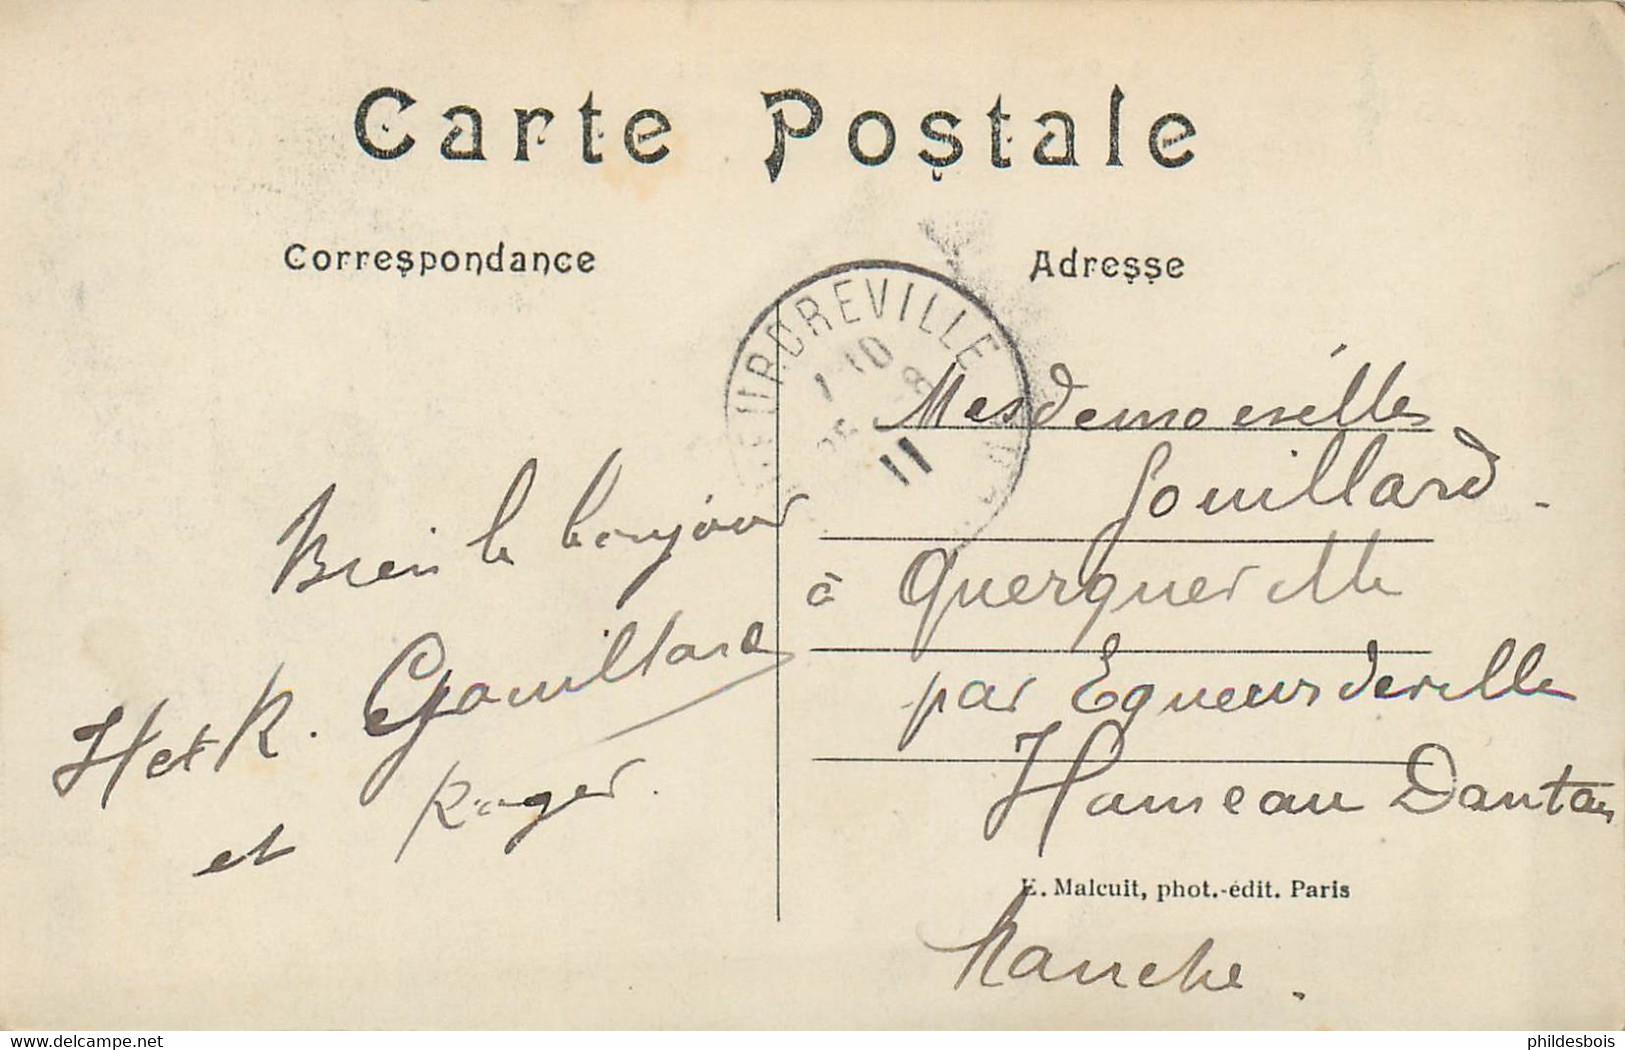 Carte Postale
Correspondance
Adresse
EURDREVILLE
11
Bien le bonjour
H et R. Gouillard
et Roger.
Mesdemoiselles
Gouillard.
à Querqueville
par Equeurdreville
Hameau Dantan
E. Malcuit, phot.-édit. Paris
Manche.
delcampe.net
phildesbois